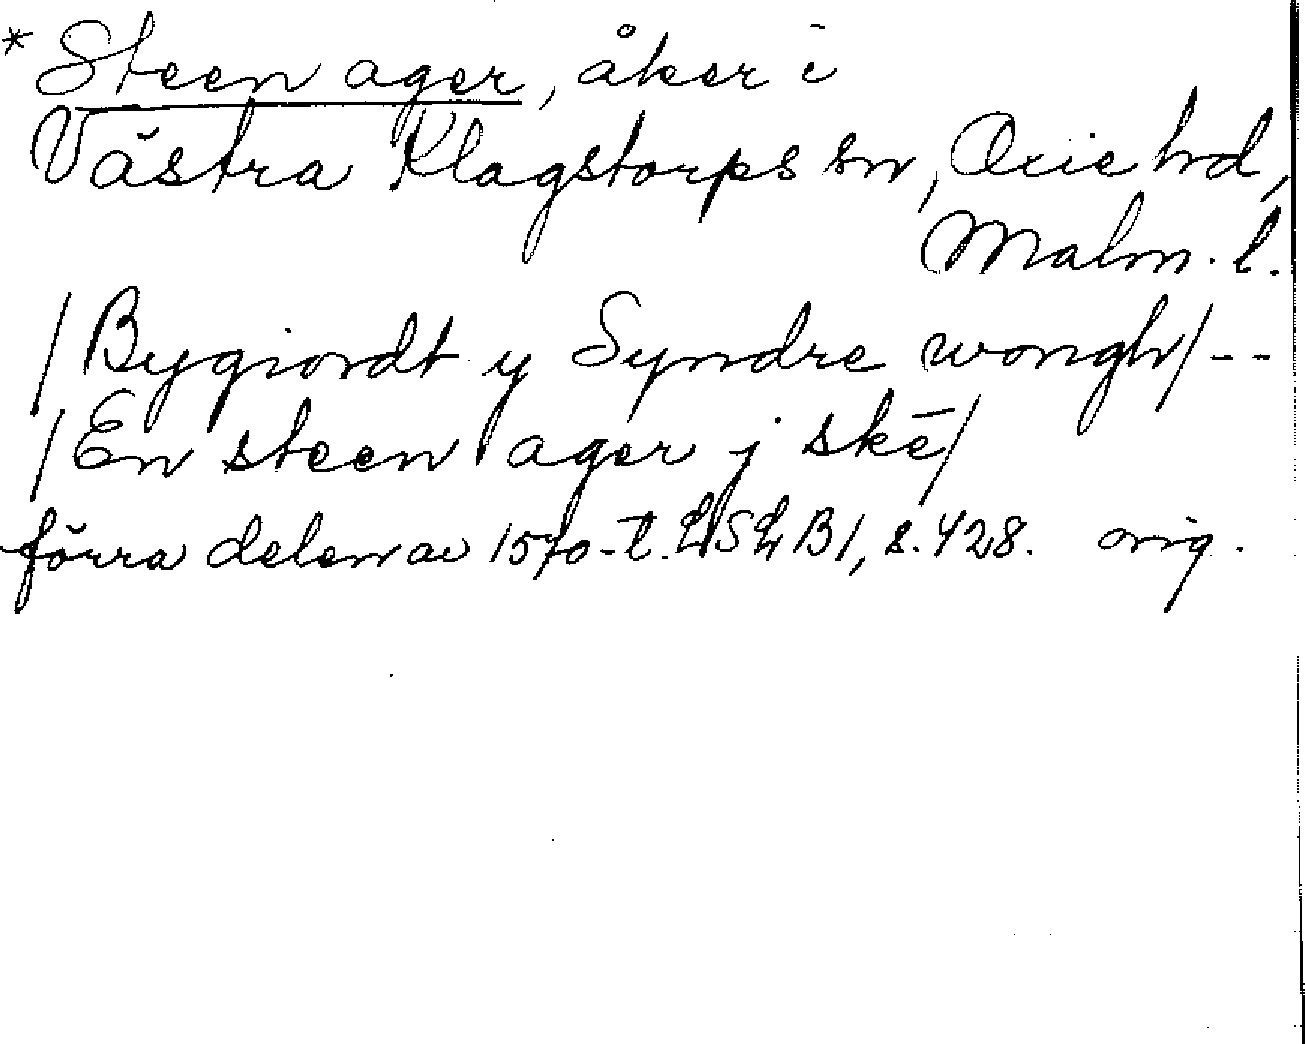 * Steen ager, åker i
Västra Klagstorps sn, Oxie hd,
Malm. l.
/Bygiordt y Syndre wongh/--
/En steen ager j skē/
förra delen av 1570-t. LSLB1, s. 428. orig.